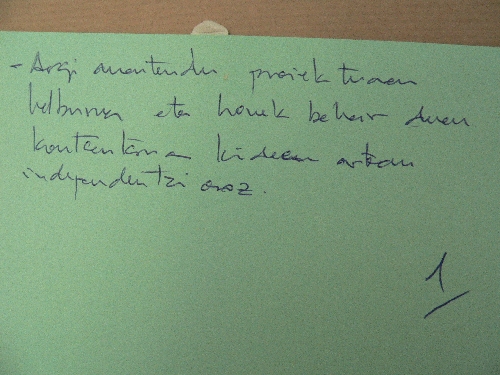 - Argi mantendu proiektuaren
helburua eta honek behar duen
kontsentsua kideen artean
independentzi osoz.
1